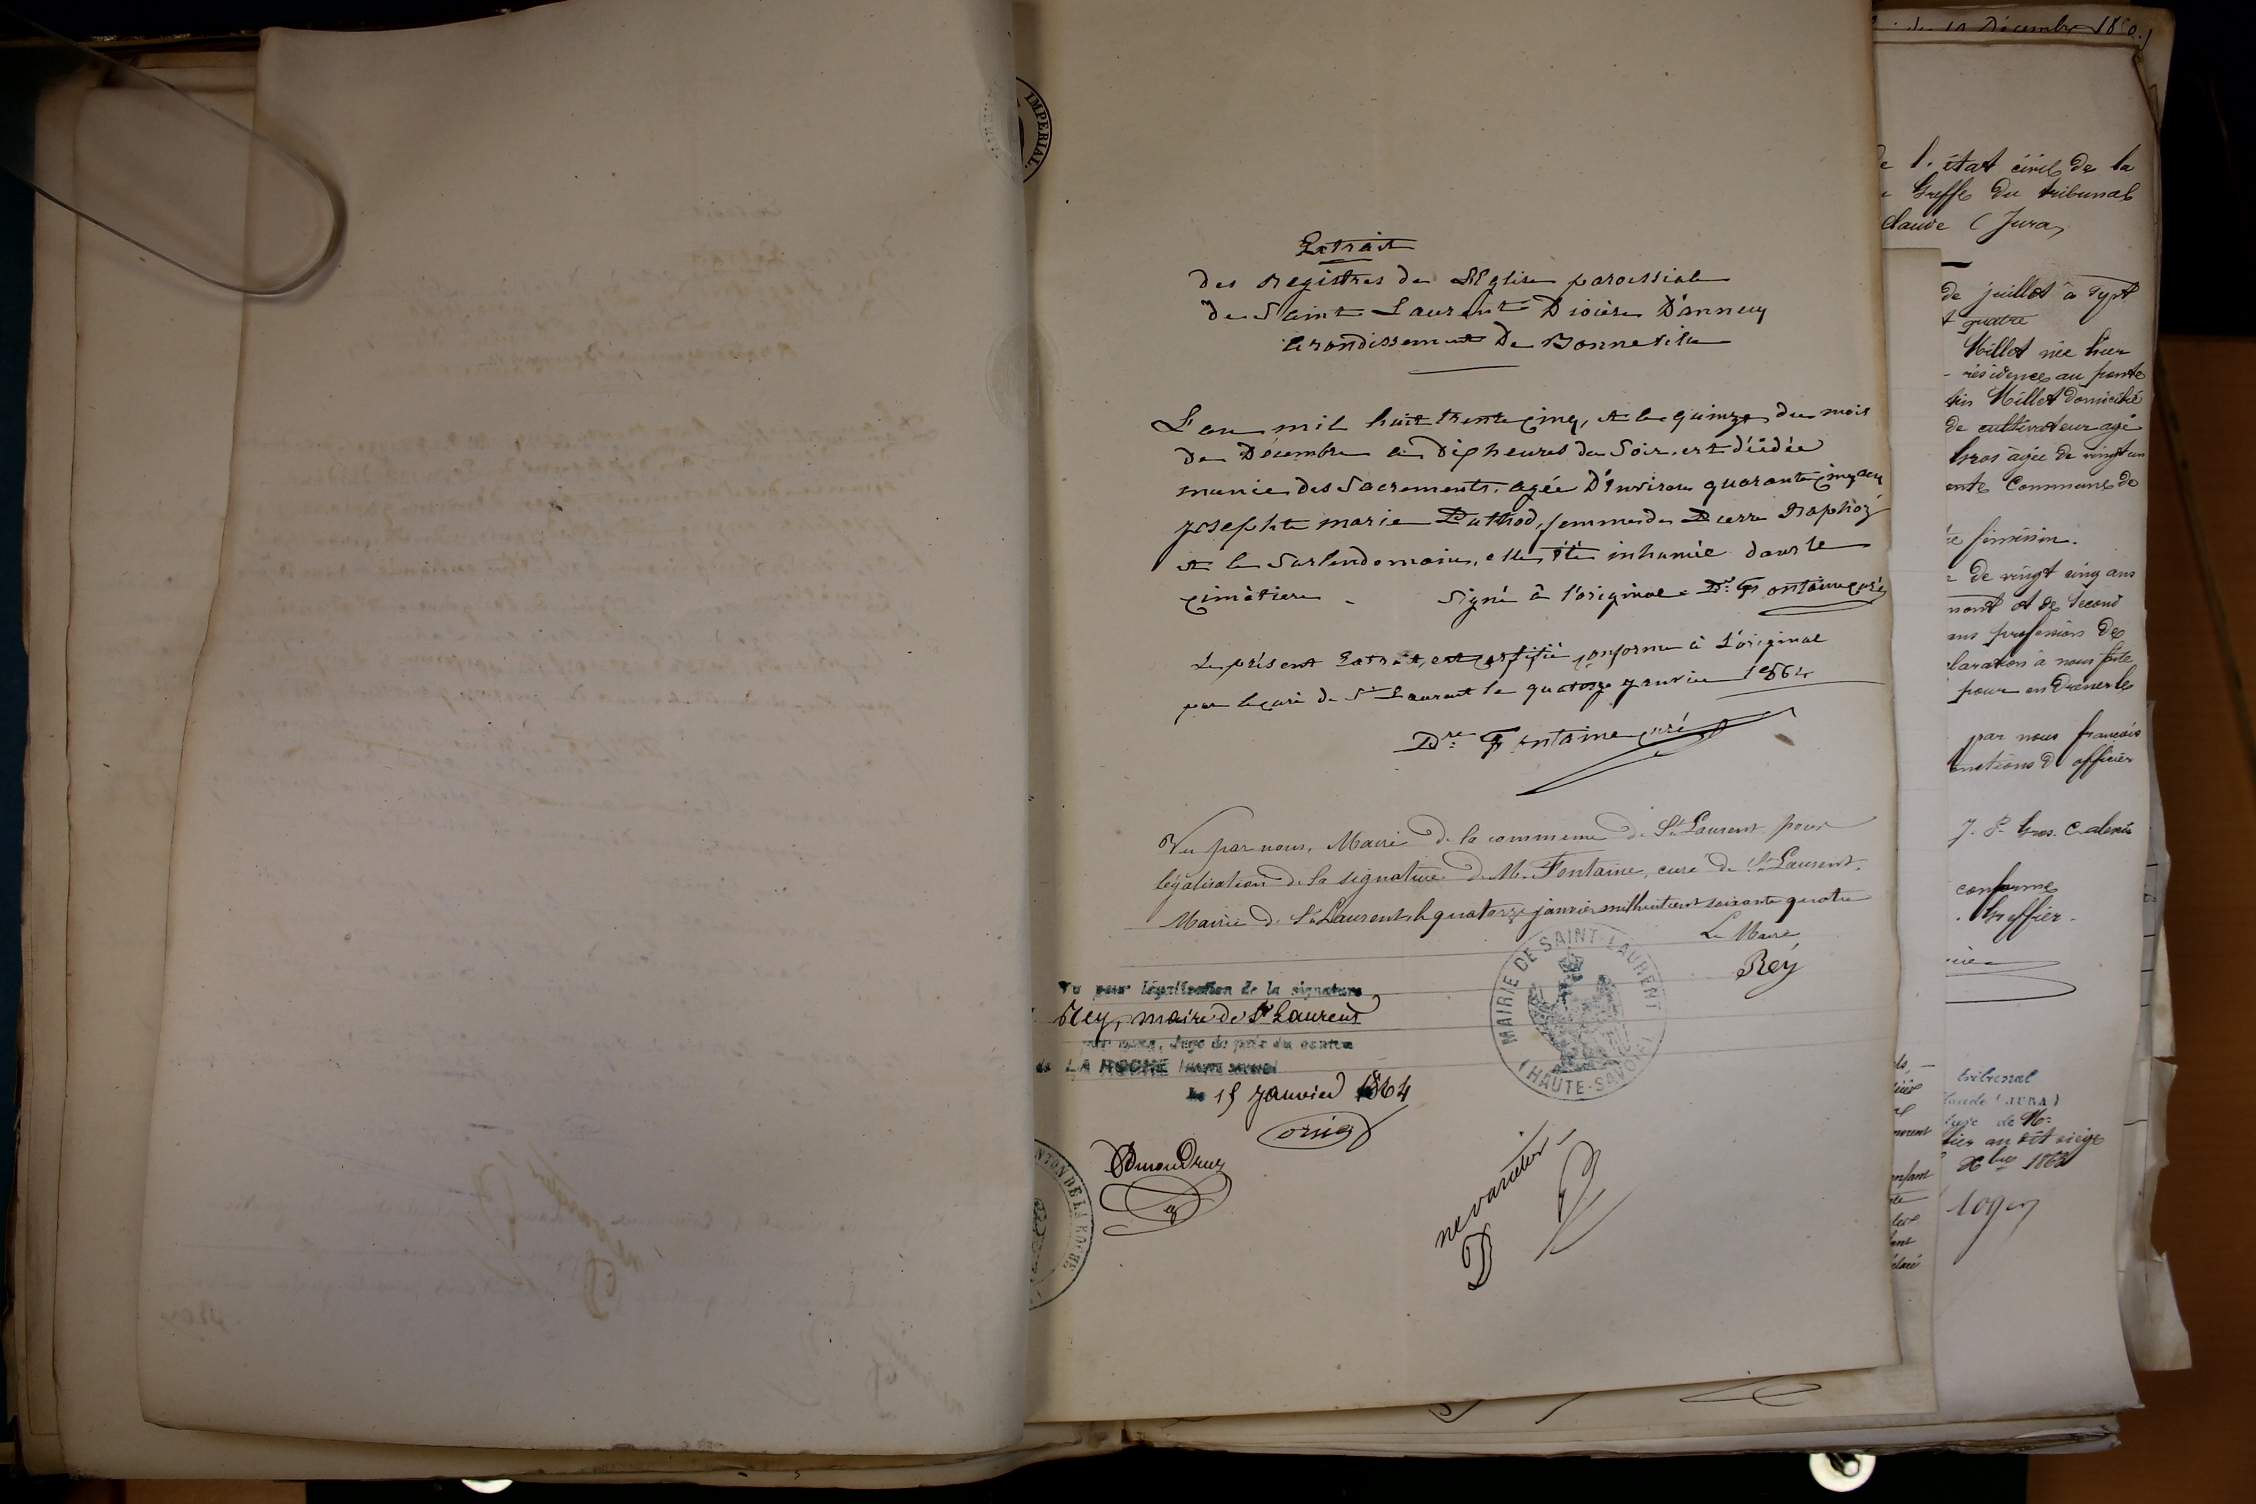 IMPERIAL.
Extrait
des Registres de L'Eglise paroissiale
de Saint Laurent Diocèse D'annecy
arondissement De Bonneville
L'an mil huit trente cinq, et le quinze du mois
De Décembre à Dix heures du Soir, est décédée
munie des Sacrements, agée D'environ quarante cinq ans
josephte marie Pathod, femme de Pierre Raphoz
et le Surlendemain, elle été inhumée dans le
cimètiere - Signé à l'original = Dre Fontaine curé
Le présent Extrait, est certifié conforme à L'original
par le curé de St Laurent le quatorze janvier 1864
Dre Fontaine curé
Vu par nous, Maire de la commune de St Laurent pour
légalisation de la signature de M. Fontaine, curé de St Laurent.
Mairie de St Laurent le quatorze janvier mil huit cent soixante quatre
Le Maire
Rey
MAIRIE DE SAINT-LAURENT
(HAUTE-SAVOIE)
Vu pour légalisation de la signature
Rey, maire de St Laurent
par nous, Juge de paix du canton
de LA ROCHE (HAUTE SAVOIE)
Le 15 janvier 1864
CANTON DE LA ROCHE
ne varietur
Décembre 18
de l'état civil de la
Greffe du tribunal
claude (Jura)
de juillet à sept
quatre
Millot née hier
résidence au
Millot domicilié
de cultivateur agé
Gros agée de vingt un
Commune de
féminin.
de vingt cinq ans
et de second
ans profession de
claration à nous faite
pour en
par nous francois
fonctions d'officier
J. P. Gros.
conforme
Greffier.
tribunal
(JURA)
de Mr
au dit siège
Xbre 186
enfant